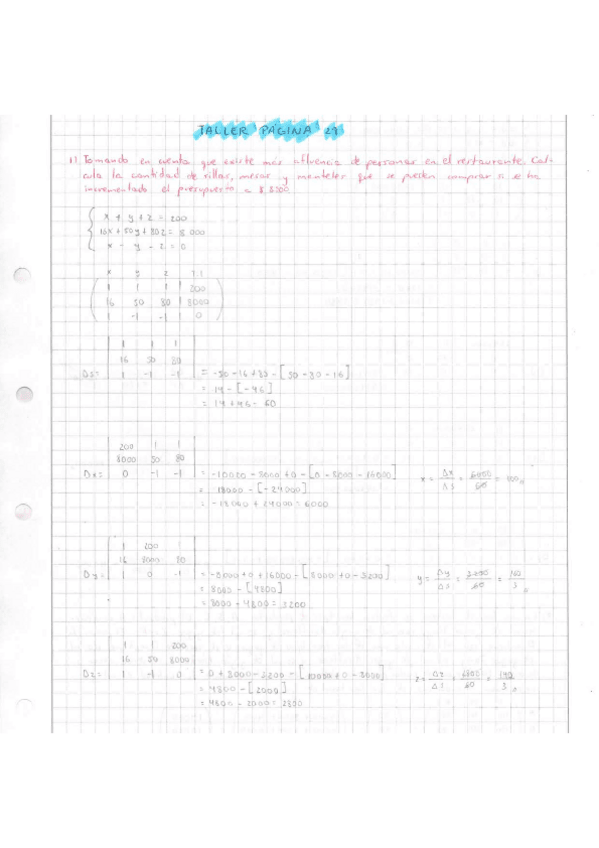 TALLER PÁGINA 29
1) Tomando en cuenta que existe más afluencia de personas en el restaurante. Cal-
cula la cantidad de sillas, mesas y manteles que se pueden comprar si se ha
incrementado el presupuesto a 8
x + y + z = 200
16x + 50y + 80z = 8 000
x - y - z = 0
x y z T.I
1 1 1 200
16 50 80 8000
1 -1 -1 0
1 1 1
16 50 80
1 -1 -1 = -50 - 16 + 80 - [50 - 80 - 16]
= 14 - [-46]
= 14 + 46 = 60
200 1 1
8000 50 80
Dx = 0 -1 -1 = -10000 - 8000 + 0 - [0 - 8000 - 16000] x = Δx/Δs = 6000/60 = 100
= 18000 - [-24000]
= -18000 + 24000 = 6000
1 200 1
16 8000 80
Dy = 1 0 -1 = -8000 + 0 + 16000 - [8000 + 0 - 3200] y = Δy/Δs = 3200/60 = 160/3
= 8000 - [4800]
= 8000 + 4800 = 3200
1 1 200
16 50 8000
Dz = 1 -1 0 = 0 + 8000 - 3200 - [10000 + 0 - 8000] z = Δz/Δs = 2800/60 = 140/3
= 4800 - [2000]
= 4800 - 2000 = 2800